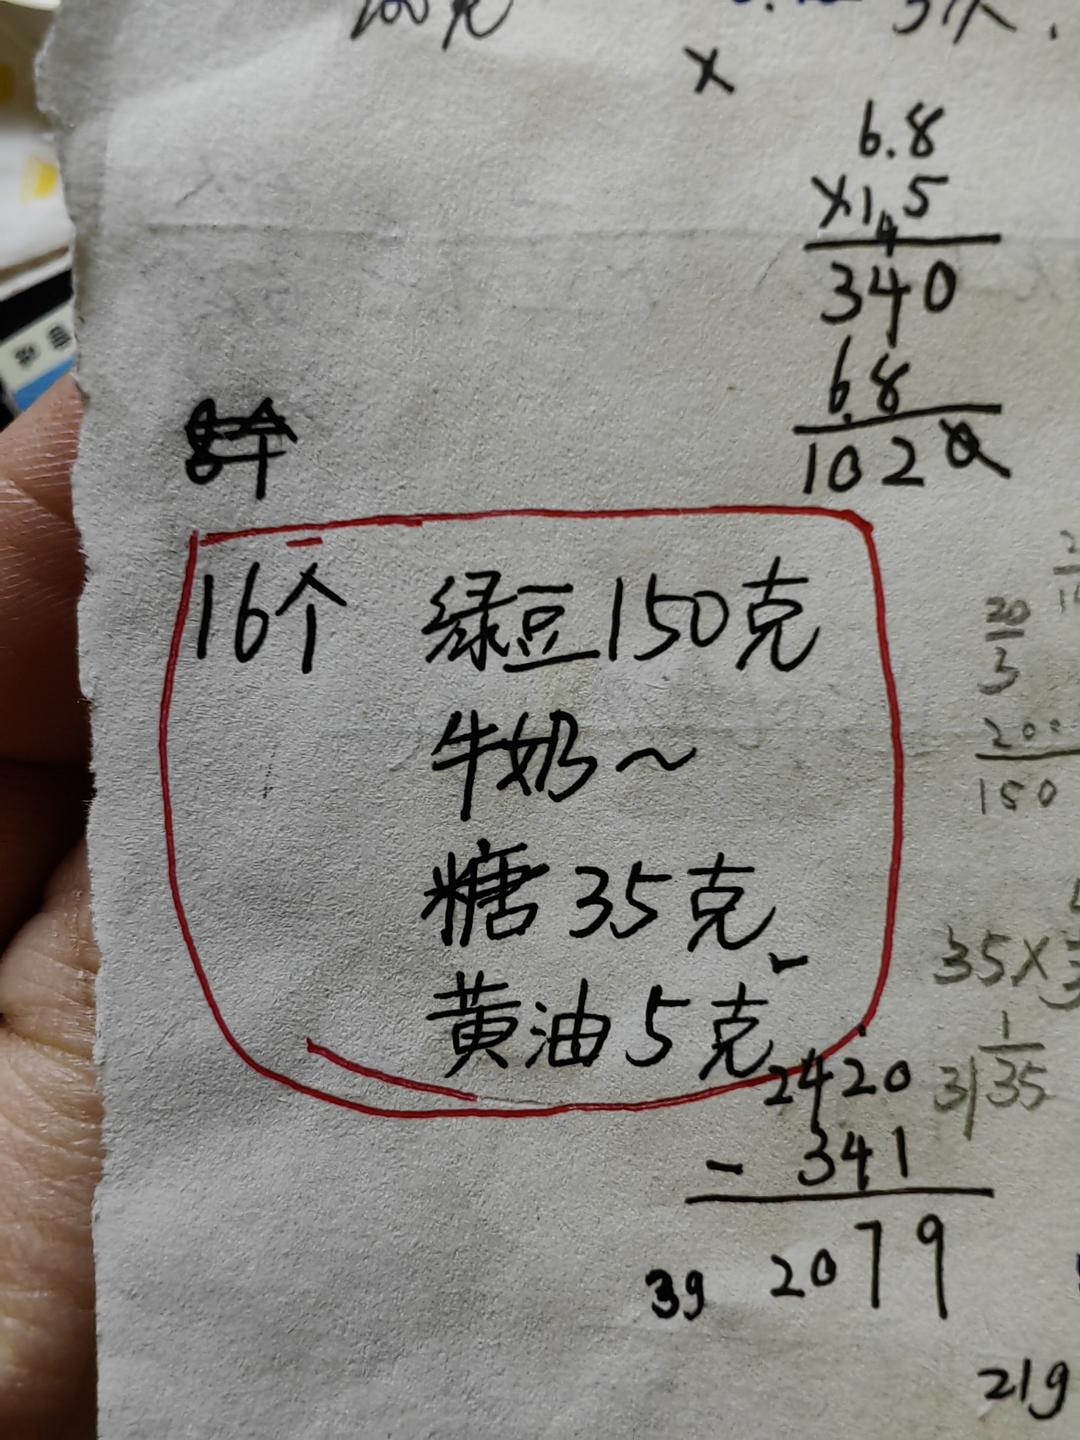 ×
6.8
×1.5
4
340
6.8
1020
16个 绿豆150克
牛奶~
糖 35克
黄油5克
20
3
200
150
35×3
1
31 35
2420
- 341
2079
39
219